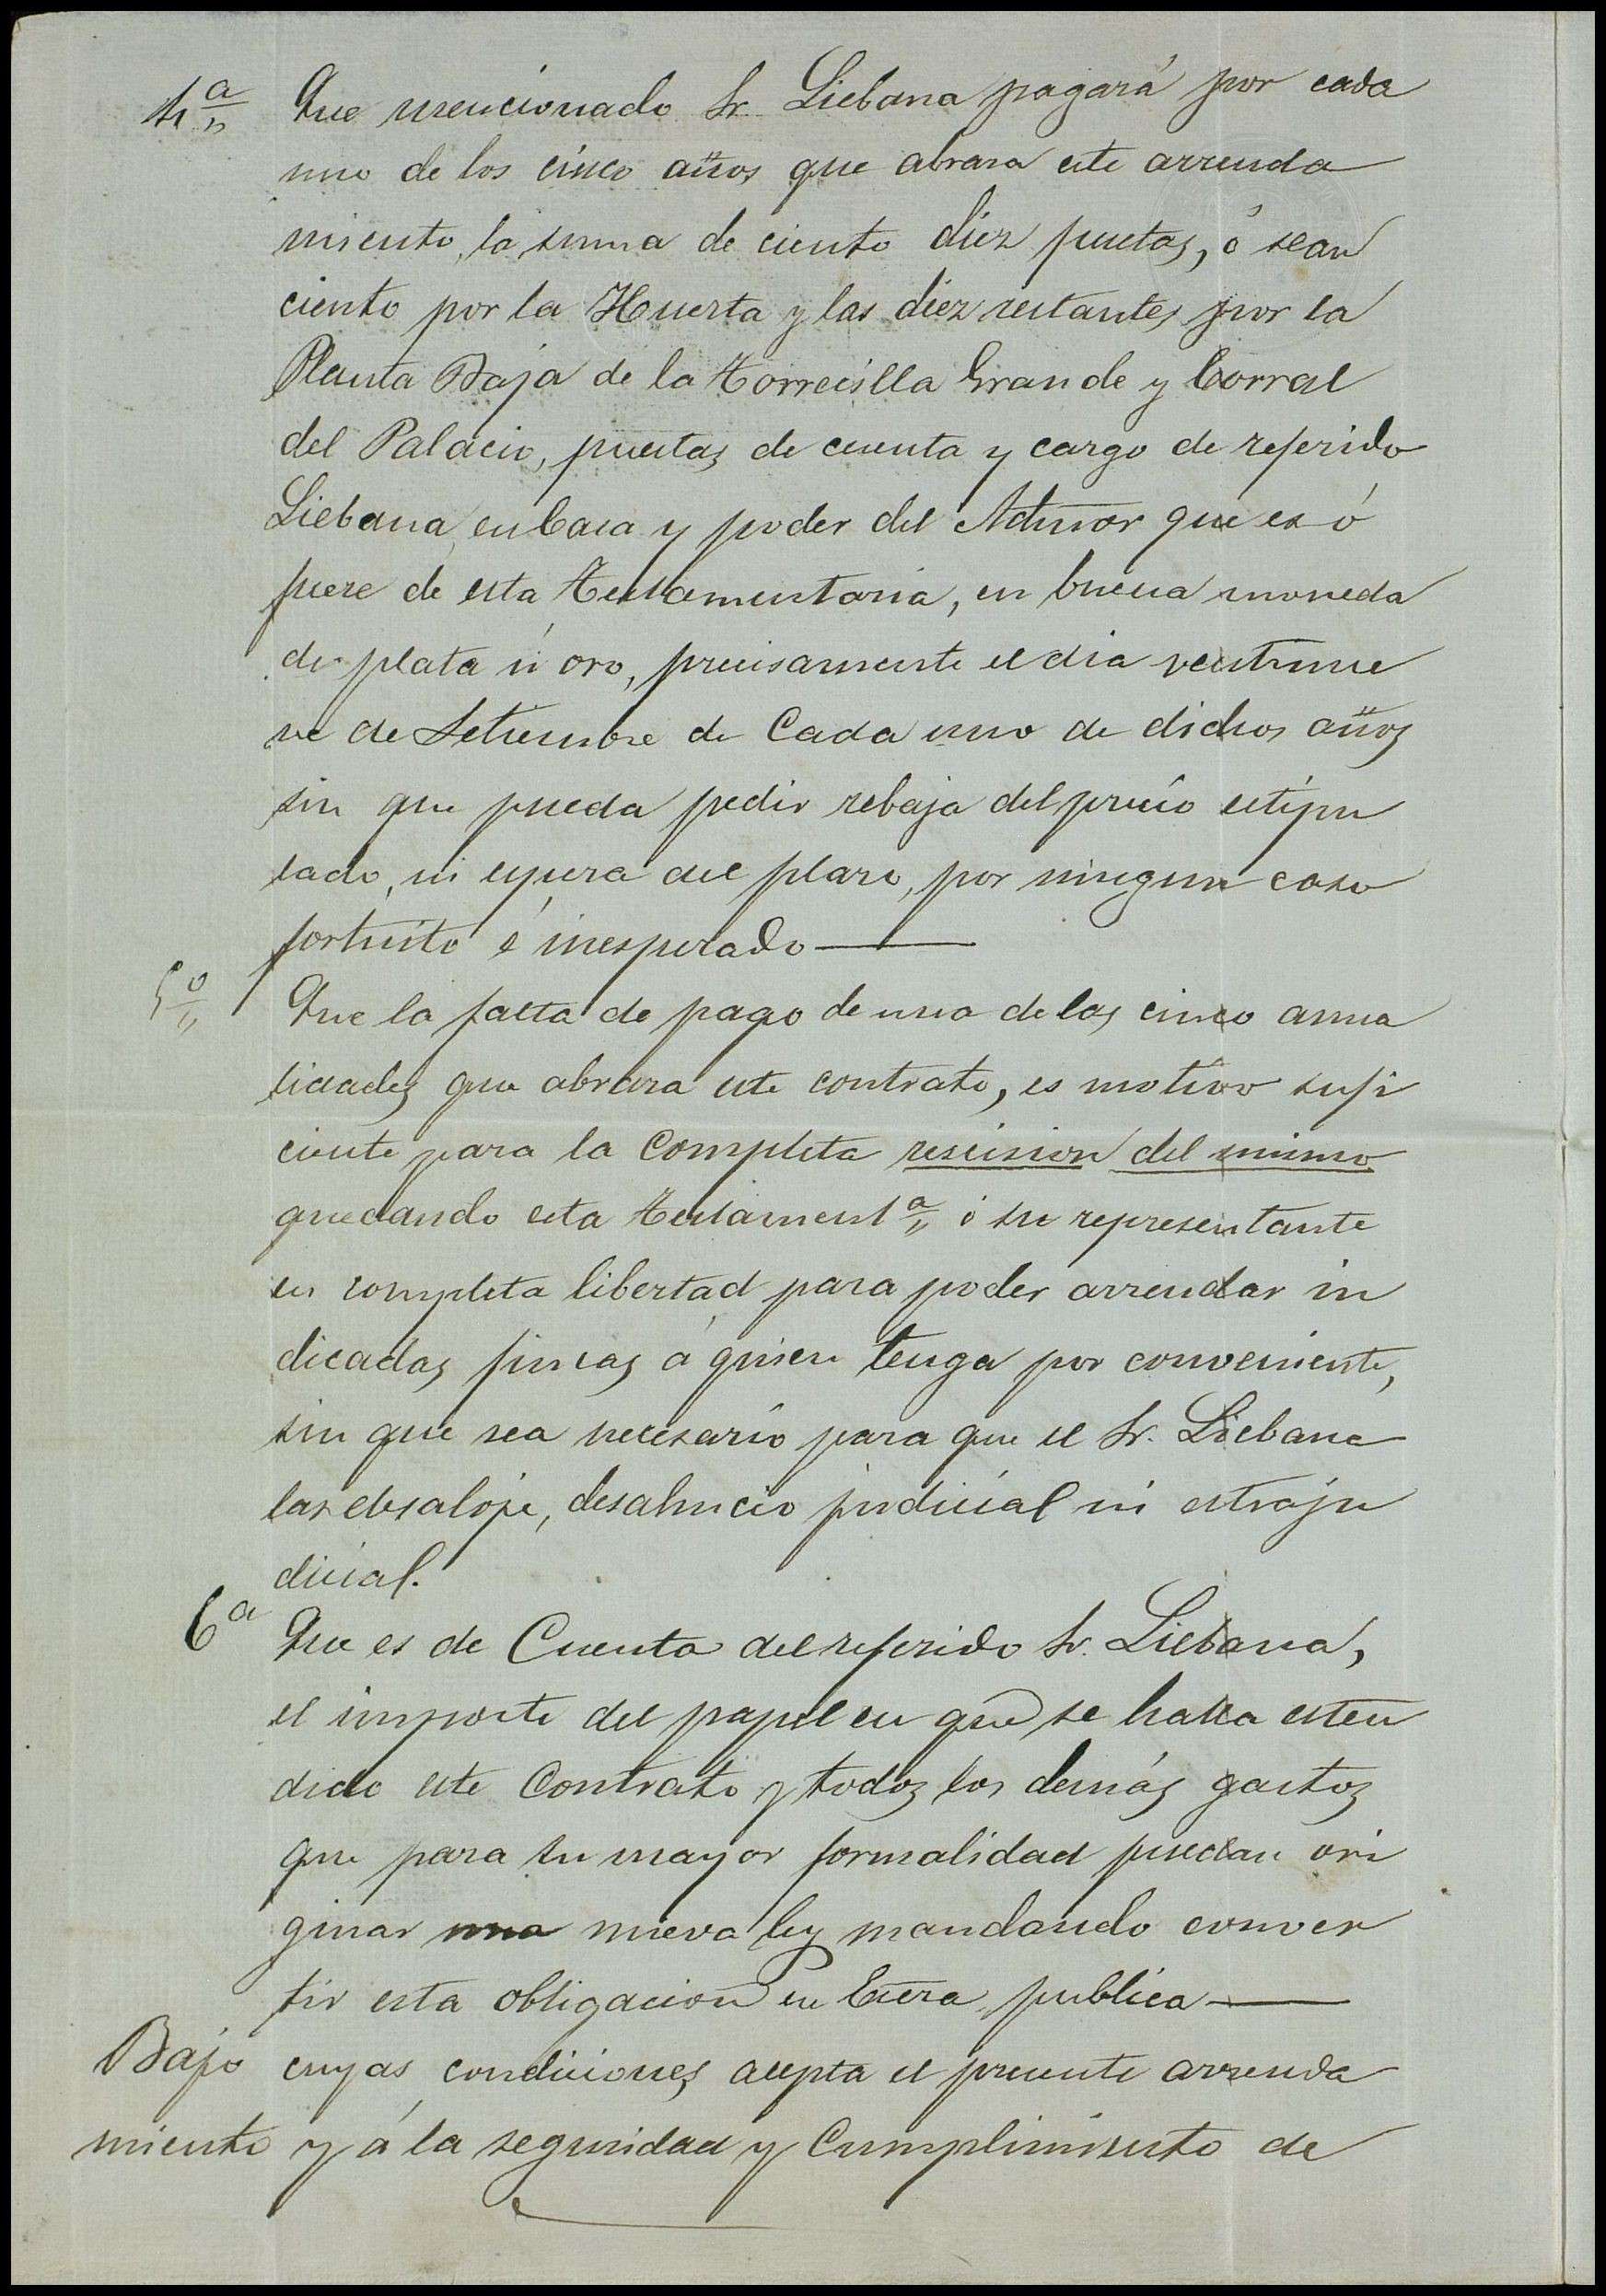 4ª Que mencionado Sr. Liebana pagará por cada
uno de los cinco años que abraza este arrenda
miento, la suma de ciento diez pesetas, ó sean
ciento por la Huerta y las diez restantes por la
Planta Baja de la Torrecilla Grande y Corral
del Palacio, puestas de cuenta y cargo de referido
Liebana, en Casa y poder del Admor que es ó
fuere de esta Testamentaria, en buena moneda
de plata ú oro, precisamente el dia veintinue
ve de Setiembre de Cada uno de dichos años
sin que pueda pedir rebaja del precio estipu
lado, ni espera del plazo, por ningun caso
fortuito é inesperado
5ª Que la falta de pago de una de las cinco anua
lidades que abraza este contrato, es motivo sufi
ciente para la Completa rescision del mismo
quedando esta Testamentª ó su representante
en completa libertad para poder arrendar in
dicadas fincas á quien tenga por conveniente,
sin que sea necesario para que el Sr. Liebana
las desaloje, desahucio judicial ni estraju
dicial.
6ª Que es de Cuenta del referido Sr. Liebana,
el importe del papel en que se halla esten
dido este Contrato y todos los demás gastos
que para su mayor formalidad puedan ori
ginar una nueva ley mandando conver
tir esta obligacion en Escra publica
Bajo cuyas condiciones acepta el presente arrenda
miento y á la seguridad y Cumplimiento de